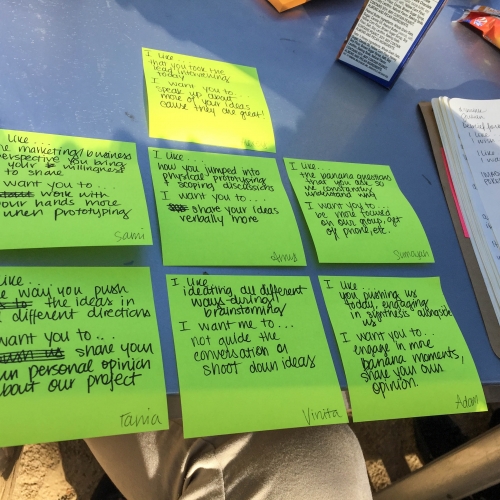 I like...
that you took the
lead interviewing
today
I want you to...
speak up about
more of your ideas
cause they are great!
like...
the marketing/business
perspective you bring
your willingness
to share
want you to...
work with
your hands more
when prototyping
Sami
I like...
how you jumped into
physical prototyping
& scoping discussions
I want you to...
share your ideas
verbally more
I like...
the banana questions
that you ask so
we constantly
understand why
I want you to...
be more focused
on our group, get
off phone, etc.
Sumayah
like...
way you push
the ideas in
different directions
want you to...
share your
own personal opinion
about our project
Tania
I like
ideating all different
ways during
brainstorming
I want me to...
not guide the
conversation or
shoot down ideas
Vinita
I like...
you pushing us
today, engaging
in synthesis alongside
us
I want you to...
engage in more
banana moments,
share your own
opinion.
Adam